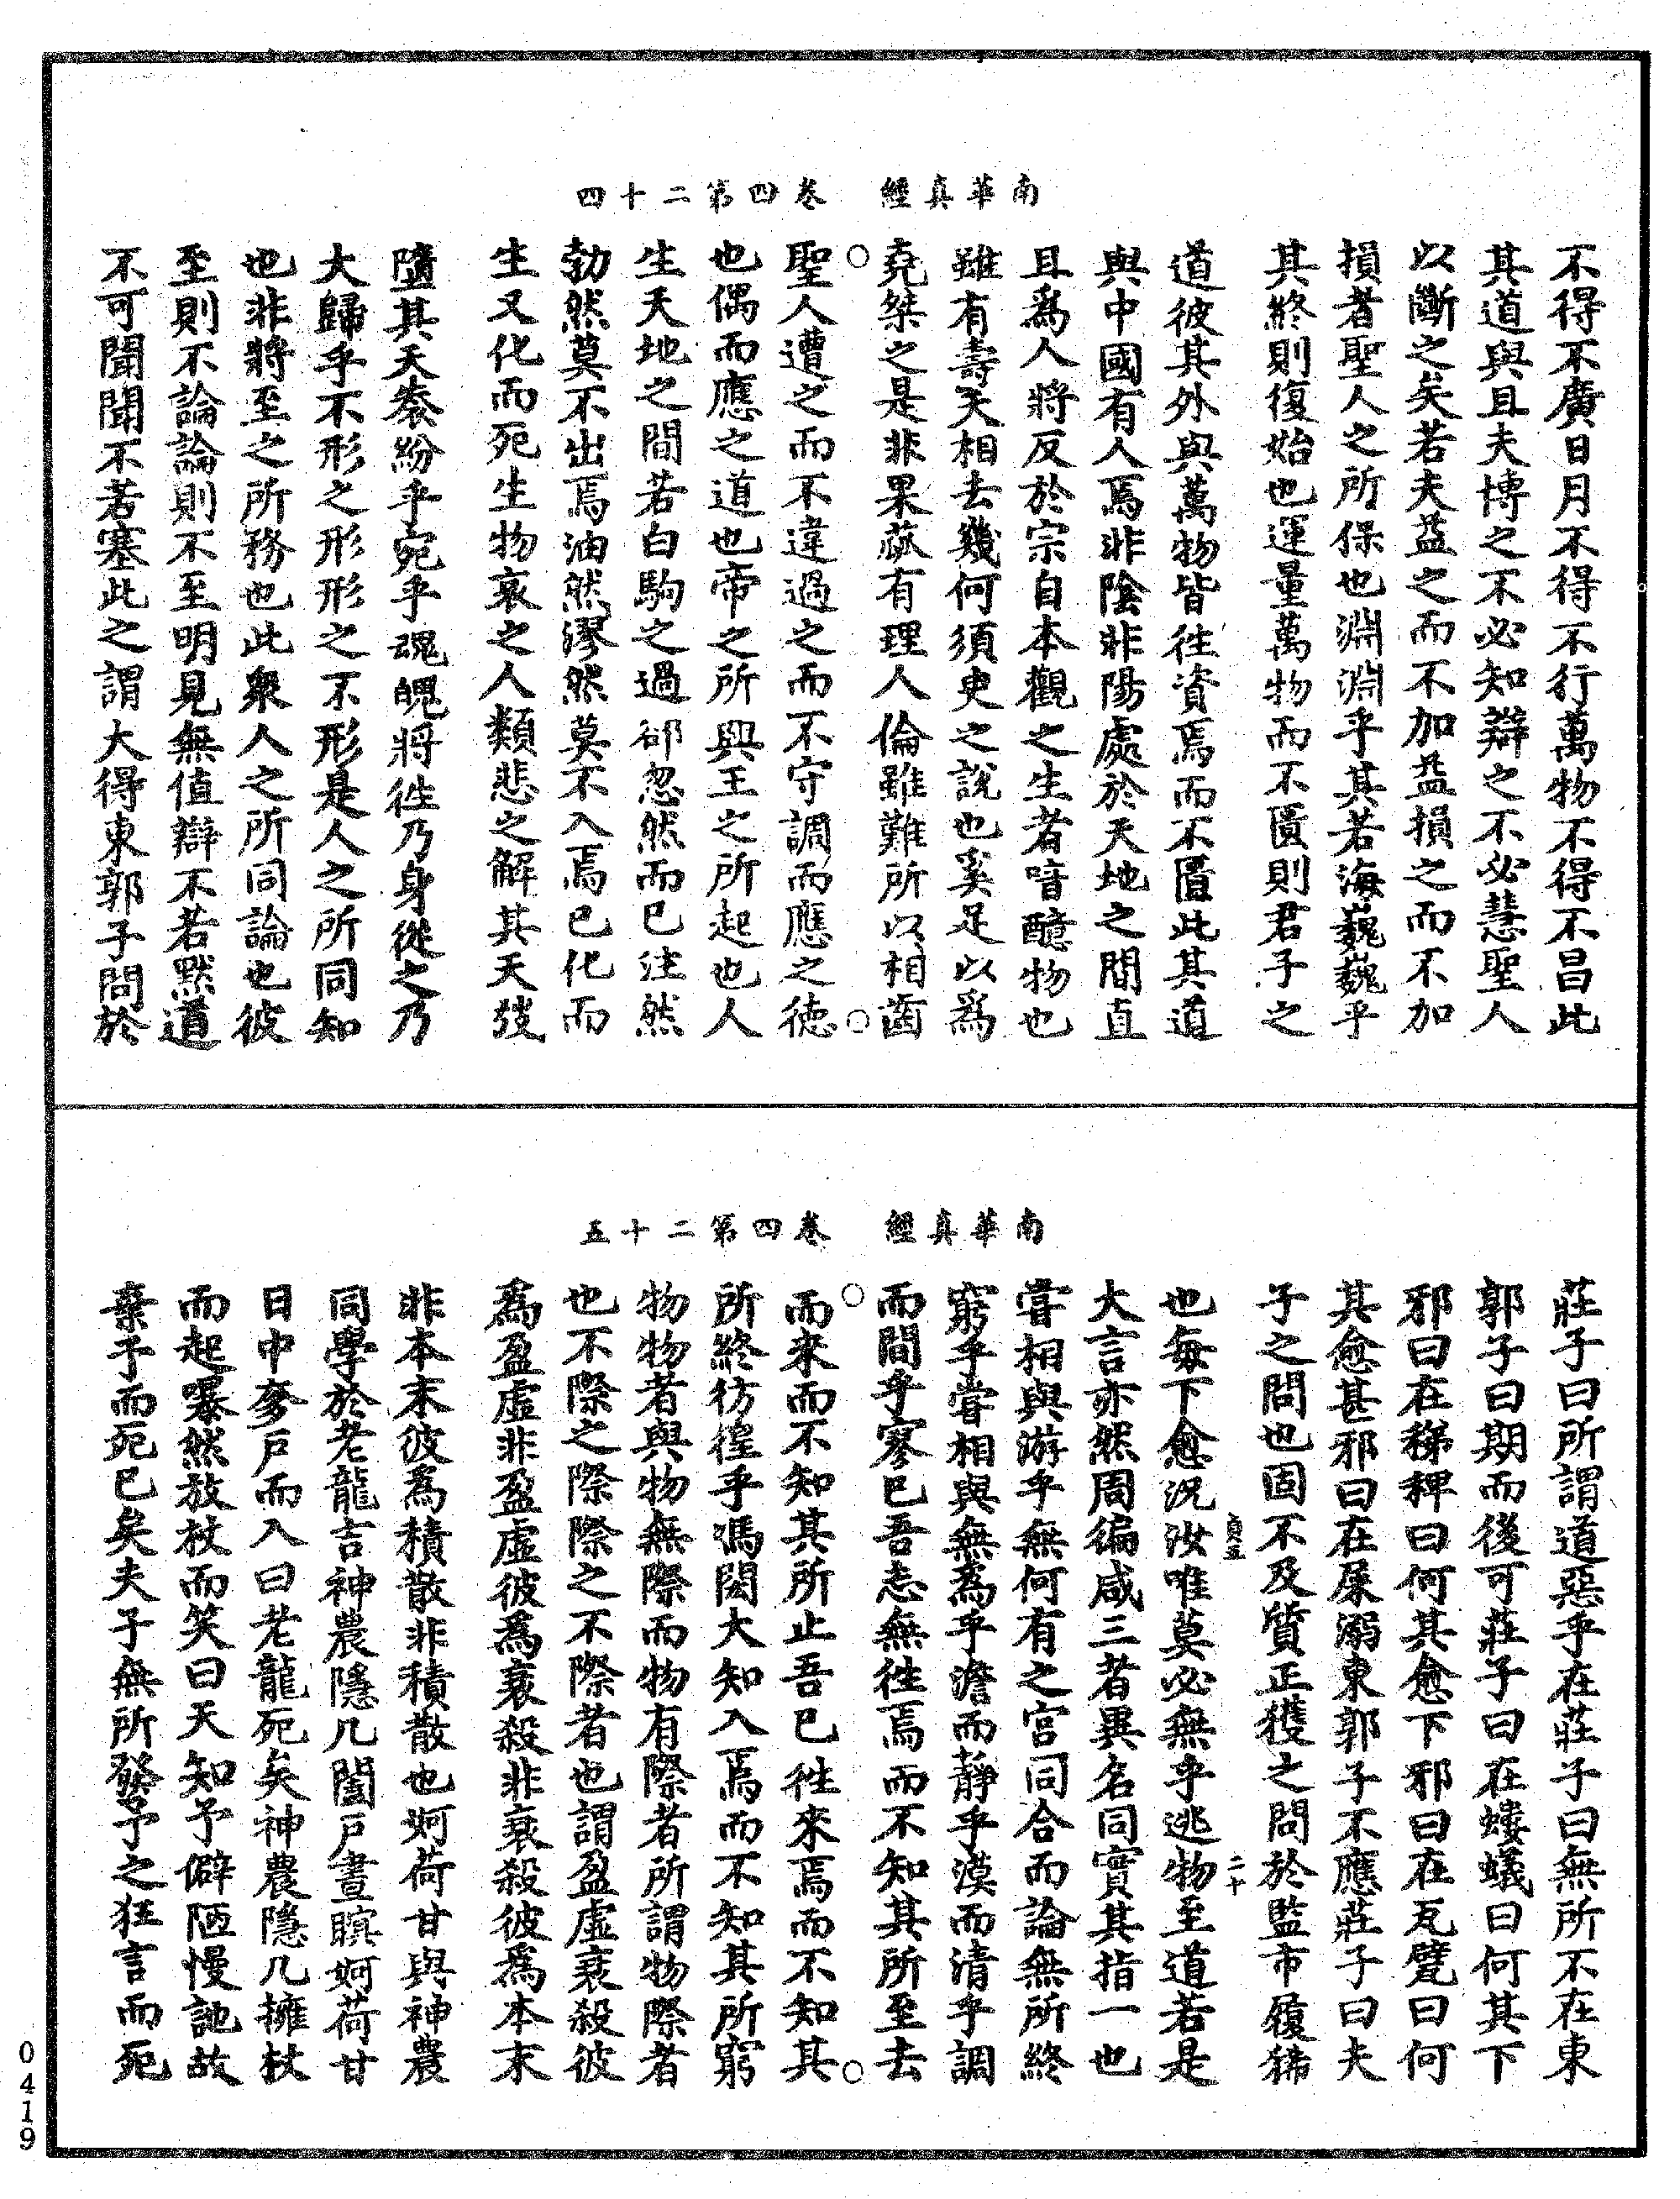 南華真經　卷四第二十四
不得不廣日月不得不行萬物不得不昌此
其道與且夫博之不必知辯之不必慧聖人
以斷之矣若夫益之而不加益損之而不加
損者聖人之所保也淵淵乎其若海巍巍乎
其終則復始也運量萬物而不匱則君子之
道彼其外與萬物皆往資焉而不匱此其道
與中國有人焉非陰非陽處於天地之間直
且爲人將反於宗自本觀之生者喑醷物也
雖有壽夭相去幾何須臾之說也奚足以爲
堯桀之是非果蓏有理人倫雖難所以相齒
聖人遭之而不違過之而不守調而應之德
也偶而應之道也帝之所興王之所起也人
生天地之間若白駒之過郤忽然而已注然
勃然莫不出焉油然漻然莫不入焉已化而
生又化而死生物哀之人類悲之解其天弢
墮其天袠紛乎宛乎魂魄將往乃身從之乃
大歸乎不形之形形之不形是人之所同知
也非將至之所務也此衆人之所同論也彼
至則不論論則不至明見無值辯不若默道
不可聞聞不若塞此之謂大得東郭子問於
南華真經　卷四第二十五
莊子曰所謂道惡乎在莊子曰無所不在東
郭子曰期而後可莊子曰在螻蟻曰何其下
邪曰在稊稗曰何其愈下邪曰在瓦甓曰何
其愈甚邪曰在屎溺東郭子不應莊子曰夫
子之問也固不及質正獲之問於監市履狶
二十
也每下愈況汝唯莫必無乎逃物至道若是
大言亦然周徧咸三者異名同實其指一也
嘗相與游乎無何有之宮同合而論無所終
窮乎嘗相與無爲乎澹而靜乎漠而清乎調
而閒乎寥已吾志無往焉而不知其所至去
而來而不知其所止吾已往來焉而不知其
所終彷徨乎馮閎大知入焉而不知其所窮
物物者與物無際而物有際者所謂物際者
也不際之際際之不際者也謂盈虛衰殺彼
爲盈虛非盈虛彼爲衰殺非衰殺彼爲本末
非本末彼爲積散非積散也妸荷甘與神農
同學於老龍吉神農隱几闔戶晝瞑妸荷甘
日中奓戶而入曰老龍死矣神農隱几擁杖
而起曝然放杖而笑曰天知予僻陋慢訑故
棄予而死已矣夫子無所發予之狂言而死
0419